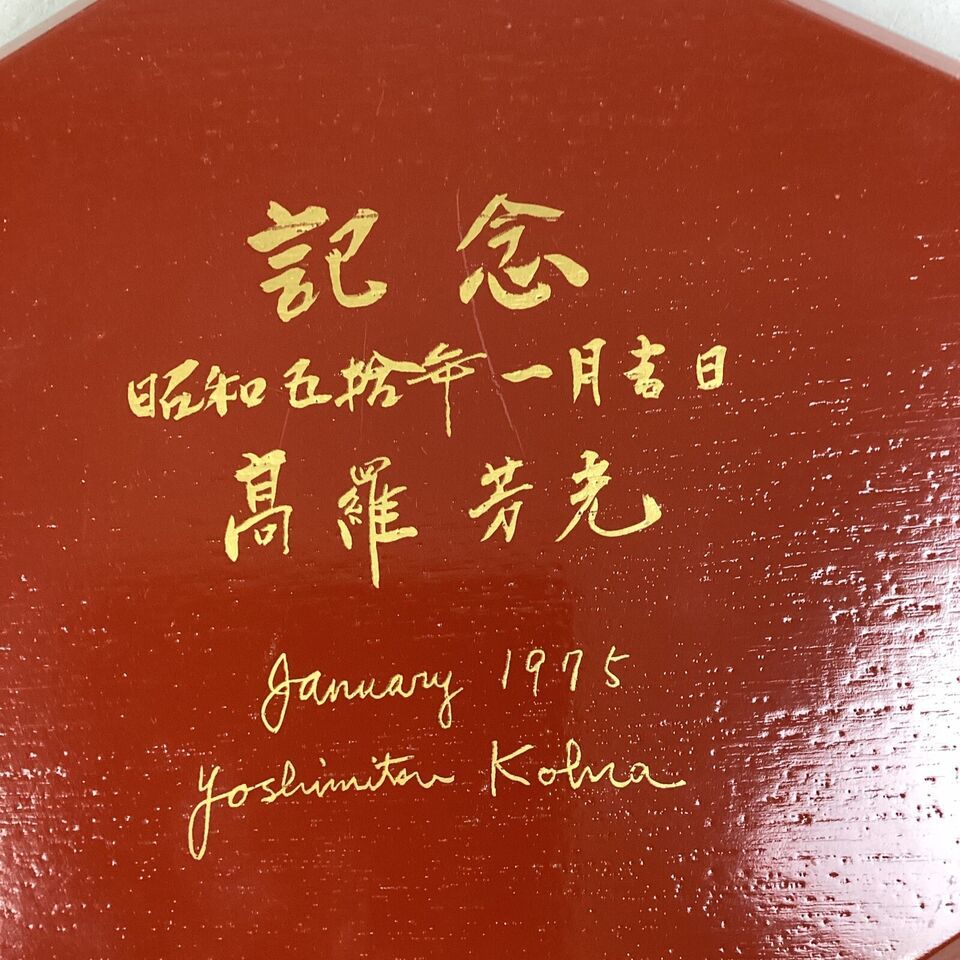 記念
昭和五拾年一月吉日
髙羅芳光
January 1975
Yoshimitsu Kohra